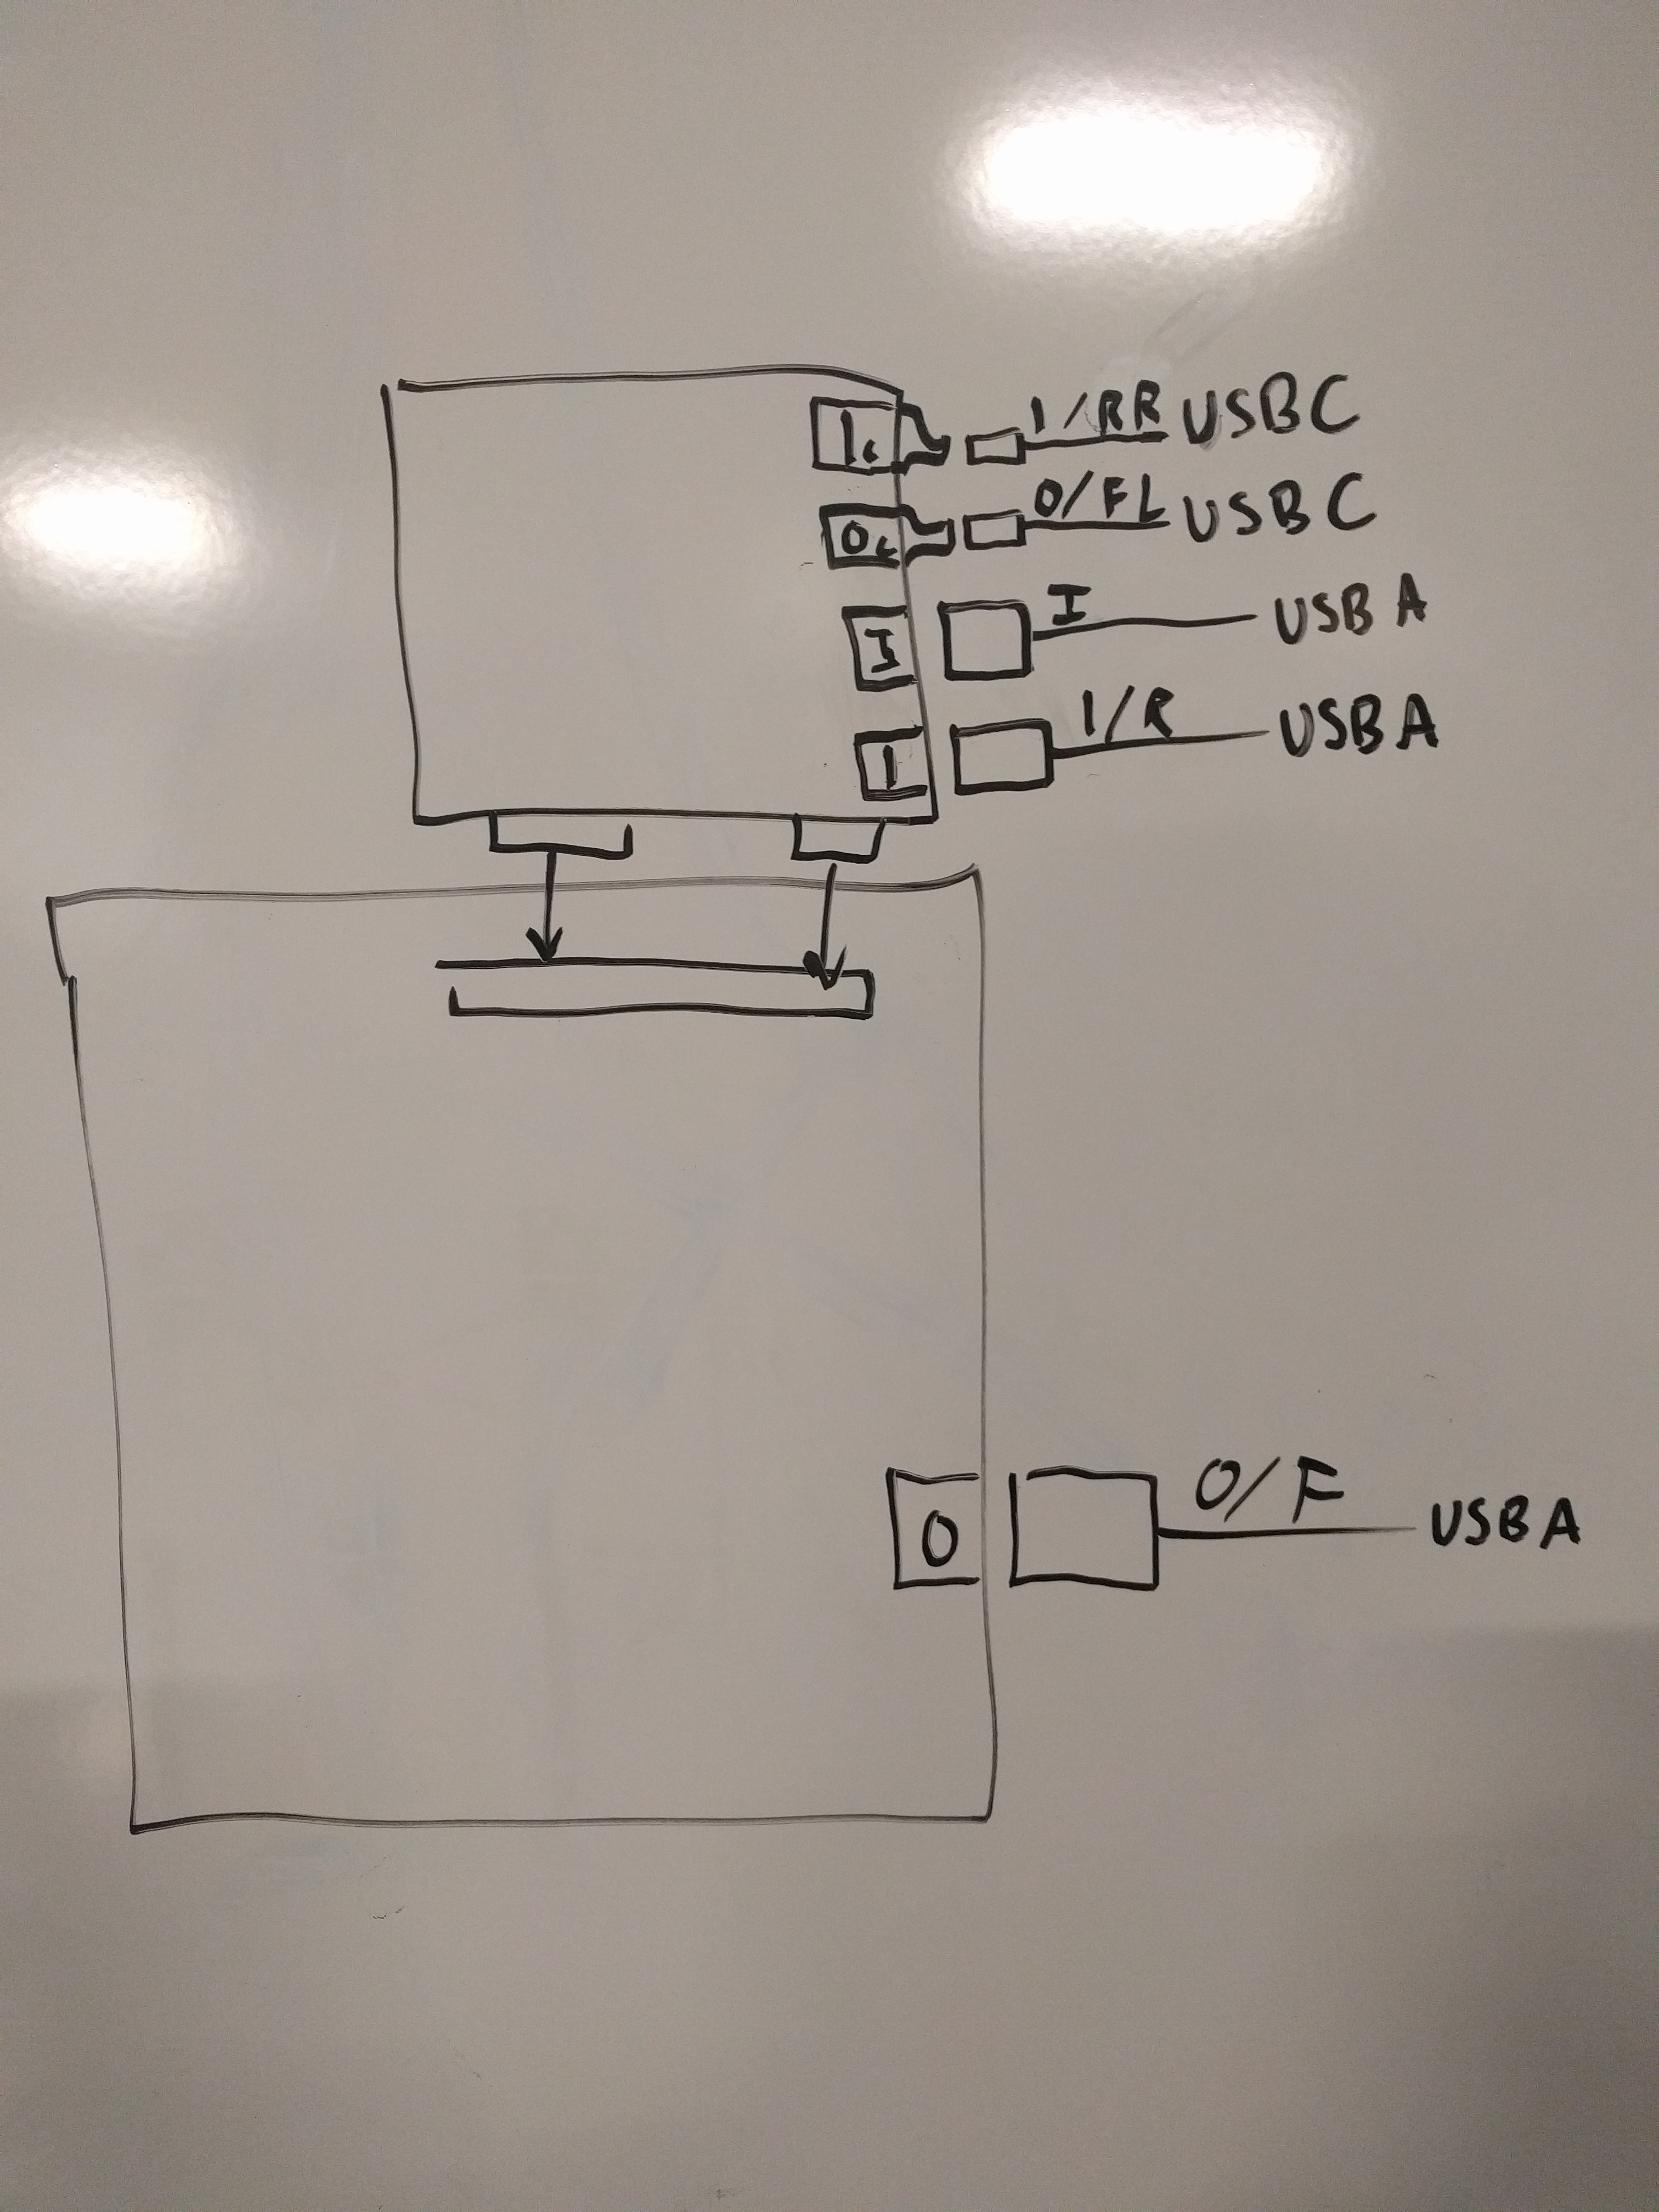 1c 1/RR USBC
0c 0/FL USBC
I I USB A
1 1/R USBA
0 O/F USBA